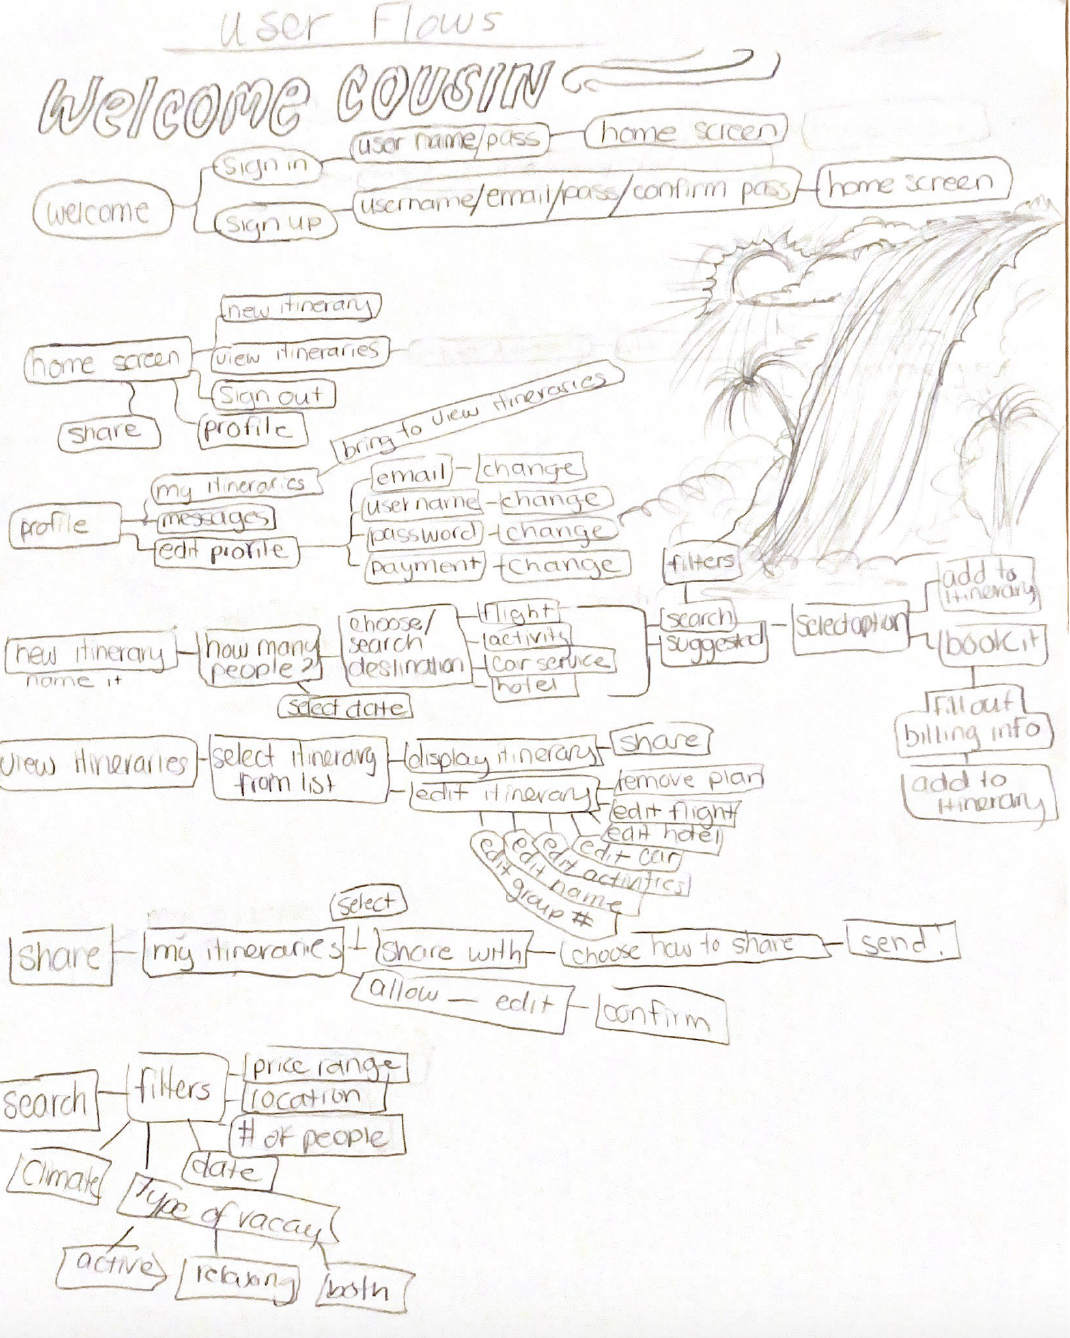 User Flows
Welcome COUSIN
user name/pass
home screen
sign in
welcome
username/email/pass/confirm pass
home screen
sign up
new itinerary
home screen
view itineraries
sign out
share
profile
bring to view itineraries
my itineraries
email
change
profile
messages
username
change
edit profile
password
change
payment
change
filters
new itinerary
name it
how many
people?
select date
choose/
search
destination
flight
activity
car service
hotel
search
suggested
select option
add to
itinerary
book it
fill out
billing info
add to
itinerary
view itineraries
select itinerary
from list
display itinerary
share
edit itinerary
remove plan
edit flight
edit hotel
edit car
edit activities
edit name
edit group #
select
share
my itineraries
share with
choose how to share
send!
allow — edit
confirm
search
filters
price range
location
# of people
climate
date
Type of vacay
active
relaxing
both